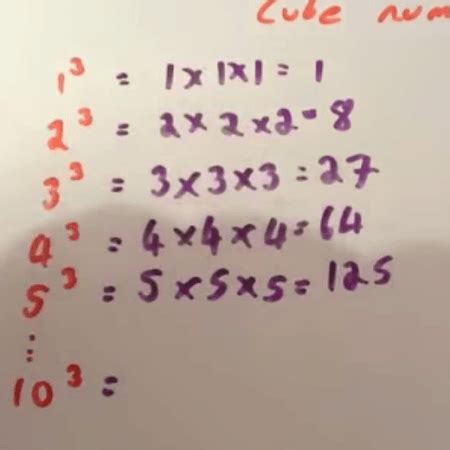 Cube num
1³ = 1 x 1 x 1 = 1
2³ = 2 x 2 x 2 = 8
3³ = 3 x 3 x 3 = 27
4³ = 4 x 4 x 4 = 64
5³ = 5 x 5 x 5 = 125
⋮
10³ =